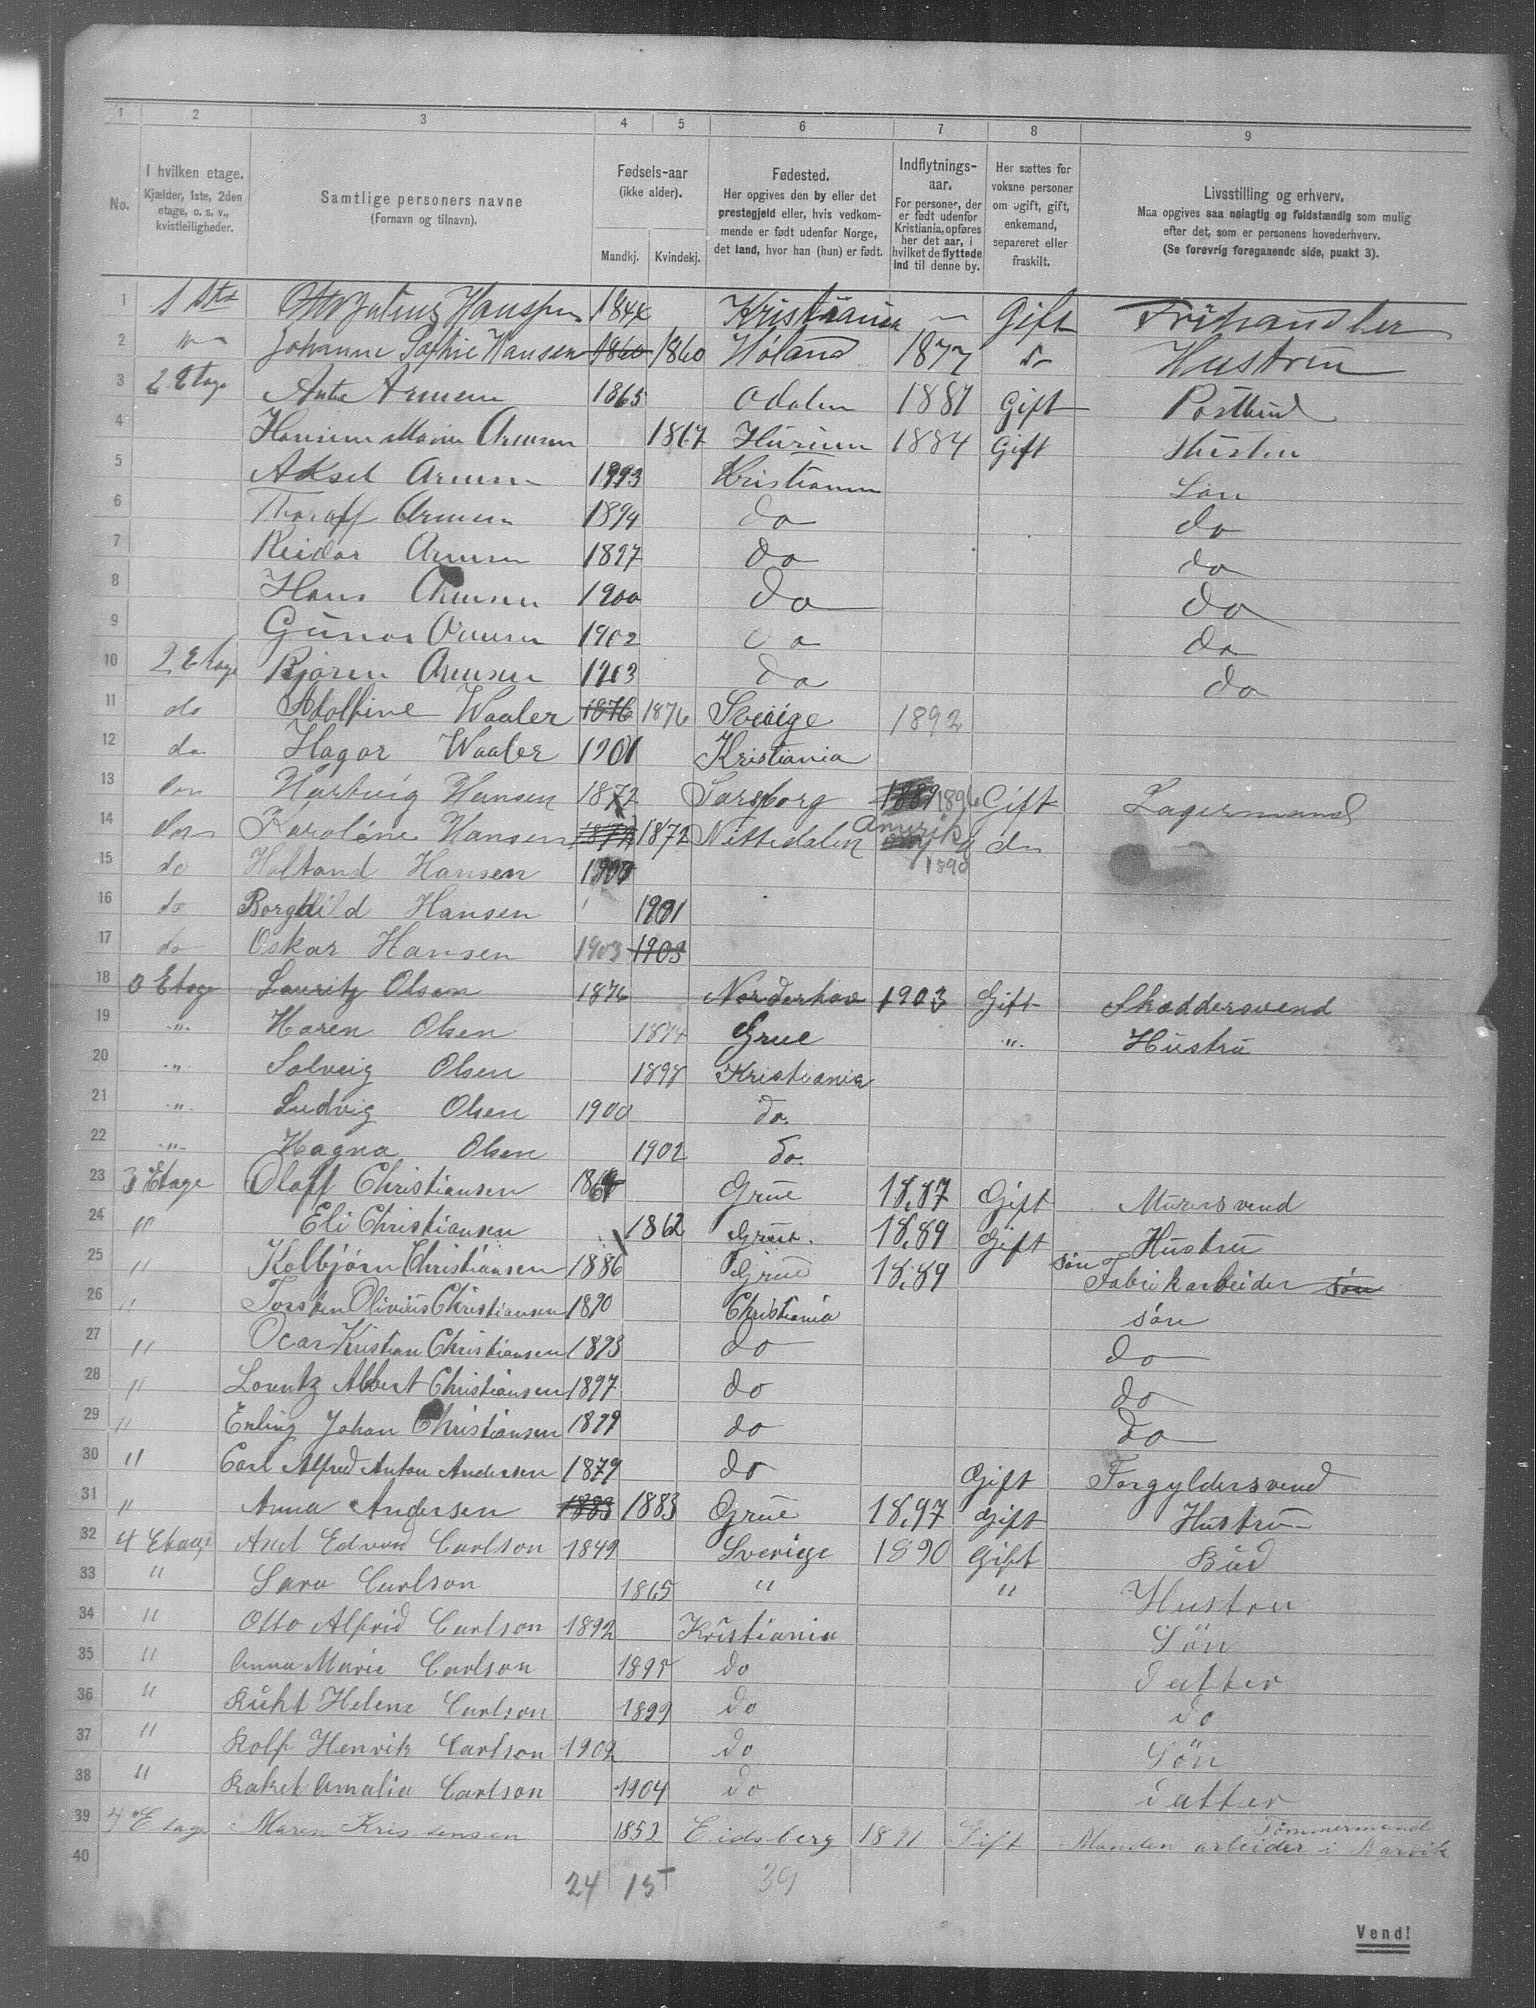 1 2 3 4 5 6 7 8 9
No.
I hvilken etage.
Kjælder, 1ste, 2den
etage, o. s. v.,
kvistleiligheder.
Samtlige personers navne
(Fornavn og tilnavn).
Fødsels-aar
(ikke alder).
Mandkj. Kvindekj.
Fødested.
Her opgives den by eller det
prestegjeld eller, hvis vedkom-
mende er født udenfor Norge,
det land, hvor han (hun) er født.
Indflytnings-
aar.
For personer, der
er født udenfor
Kristiania, opføres
her det aar, i
hvilket de flyttede
ind til denne by.
Her sættes for
voksne personer
om ugift, gift,
enkemand,
separeret eller
fraskilt.
Livsstilling og erhverv.
Maa opgives saa nøiagtig og fuldstændig som mulig
efter det, som er personens hovederhverv.
(Se forøvrig foregaaende side, punkt 3).
1 1 Hanssen 1844 Kristiania — Gift Frihandler
2 Johanne Sophie Hansen 1860 1860 Høland 1877 Hustru
3 2 Etage 1865 Odalen 1887 Gift Postbud
4 1867 Hurum 1884 Gift Hustru
5 Aksel 1893 Kristiania Søn
6 1894 do do
7 Reidar 1897 do do
8 Hans 1900 do do
9 Gunar 1902 do do
10 2 Etage Bjørn 1903 do do
11 do Adolfine Waaler 1876 1876 Sveiige 1892
12 do Hagar Waaler 1901 Kristiania
13 do Hartvig Hansen 1872 Sarsborg 1889 1896 Gift Lagermand
14 do Karoline Hansen 1872 1872 Nittedalen Amerika 1890 do
15 do Hansen 1900
16 do Borghild Hansen 1901
17 do Oskar Hansen 1903 1903
18 3 Etage Lauritz Olsen 1876 Norderhov 1903 Gift Skreddersvend
19 " Karen Olsen 1874 Grue " Hustru
20 " Solveig Olsen 1898 Kristiania
21 " Ludvig Olsen 1900 do.
22 " Magna Olsen 1902 Do.
23 3 Etage Olaff Christiansen Grue 18.87 Gift Murersvend
24 " Eli Christiansen 1862 Grue. 18.89 Gift Hustru
25 " Kolbjørn Christiansen 1886 Grue 18.89 søn Fabrikarbeider søn
26 " Torsten Olivius Christiansen 1890 Christiania søn
27 " Ocar Kristian Christiansen 1893 do do
28 " Lorentz Albert Christiansen 1897 do do
29 " Erling Johan Christiansen 1899 do do
30 " Carl Alfred Anton Andersen 1879 do Gift Forgyldersvend
31 " Anna Andersen 1883 1883 Grue 18.97 Gift Hustru
32 4 Etage Axel Edvard Carlson 1849 Sverige 1890 Gift Bud
33 " Sara Carlson 1865 " " Hustru
34 " Otto Alfrid Carlson 1892 Kristiania Søn
35 " Anna Marie Carlson 1895 do Datter
36 " Ruht Helene Carlson 1899 do do
37 " Rolf Henrik Carlson 1902 do Søn
38 " Rakel Amalia Carlson 1904 do datter
39 4 Etage Maren Kristensen 1852 Eidsberg 1891 Gift Tømmermand
Manden arbeider i Narvik
40
24 15 39
Vend!